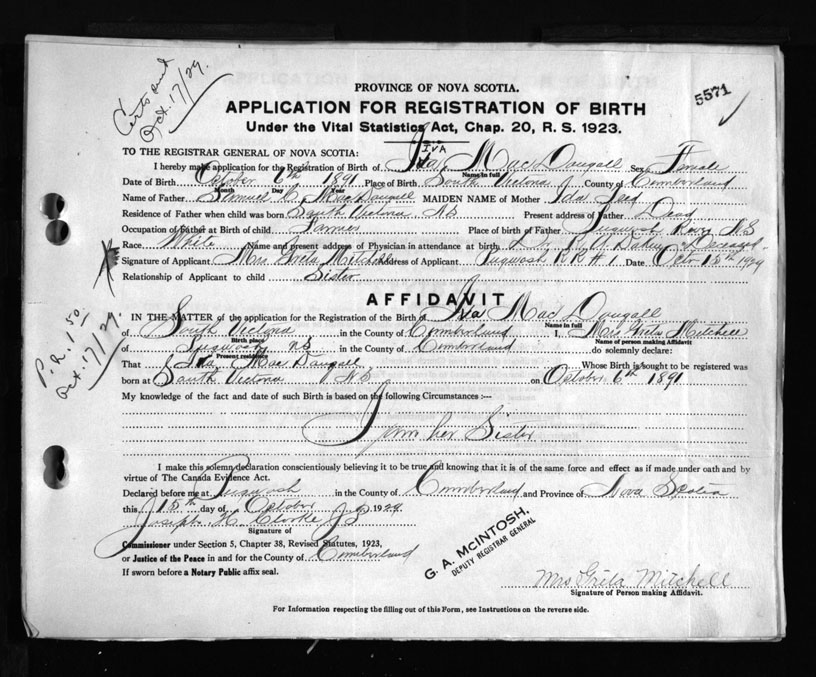 Certs sent
Oct. 17/29.
5571
PROVINCE OF NOVA SCOTIA.
APPLICATION FOR REGISTRATION OF BIRTH
Under the Vital Statistics Act, Chap. 20, R. S. 1923.
TO THE REGISTRAR GENERAL OF NOVA SCOTIA:
IVA
I hereby make application for the Registration of Birth of Iva Mac Dougall Sex Female
Name in full
Date of Birth October 6th 1891 Place of Birth South Victoria County of Cumberland
Month Day Year
Name of Father Samuel C. MacDougall MAIDEN NAME of Mother Ida
Residence of Father when child was born South Victoria NS Present address of Father Dead
Occupation of Father at Birth of child Farmer Place of birth of Father Pugwash River NS
Race White Name and present address of Physician in attendance at birth Deceased
Signature of Applicant Mrs Greta Mitchell Address of Applicant Pugwash R R # 1 Date Octor 15th 1929
Relationship of Applicant to child Sister
AFFIDAVIT
P. R. 1.50
Oct. 17/29.
IN THE MATTER of the application for the Registration of the Birth of Iva Mac Dougall
Name in full
of South Victoria in the County of Cumberland I, Mrs Greta Mitchell
Birth place Name of person making Affidavit
of Pugwash NS in the County of Cumberland do solemnly declare:
Present residence
That Iva Mac Dougall Whose Birth is sought to be registered was
born at South Victoria NS on October 6th 1891
My knowledge of the fact and date of such Birth is based on the following Circumstances :—
I am her Sister
I make this solemn declaration conscientiously believing it to be true and knowing that it is of the same force and effect as if made under oath and by
virtue of The Canada Evidence Act.
Declared before me at Pugwash in the County of Cumberland and Province of Nova Scotia
this 15th day of October 1929
Joseph H. Clarke J P
Signature of
Commissioner under Section 5, Chapter 38, Revised Statutes, 1923,
or Justice of the Peace in and for the County of Cumberland
If sworn before a Notary Public affix seal.
G. A. McINTOSH,
DEPUTY REGISTRAR GENERAL
Mrs Greta Mitchell
Signature of Person making Affidavit.
For Information respecting the filling out of this Form, see Instructions on the reverse side.